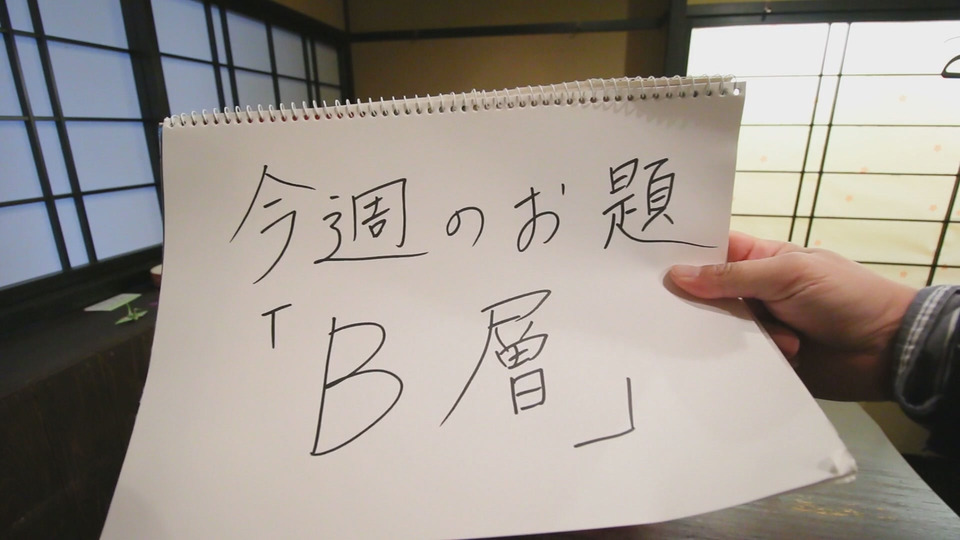 今週のお題
「B層」